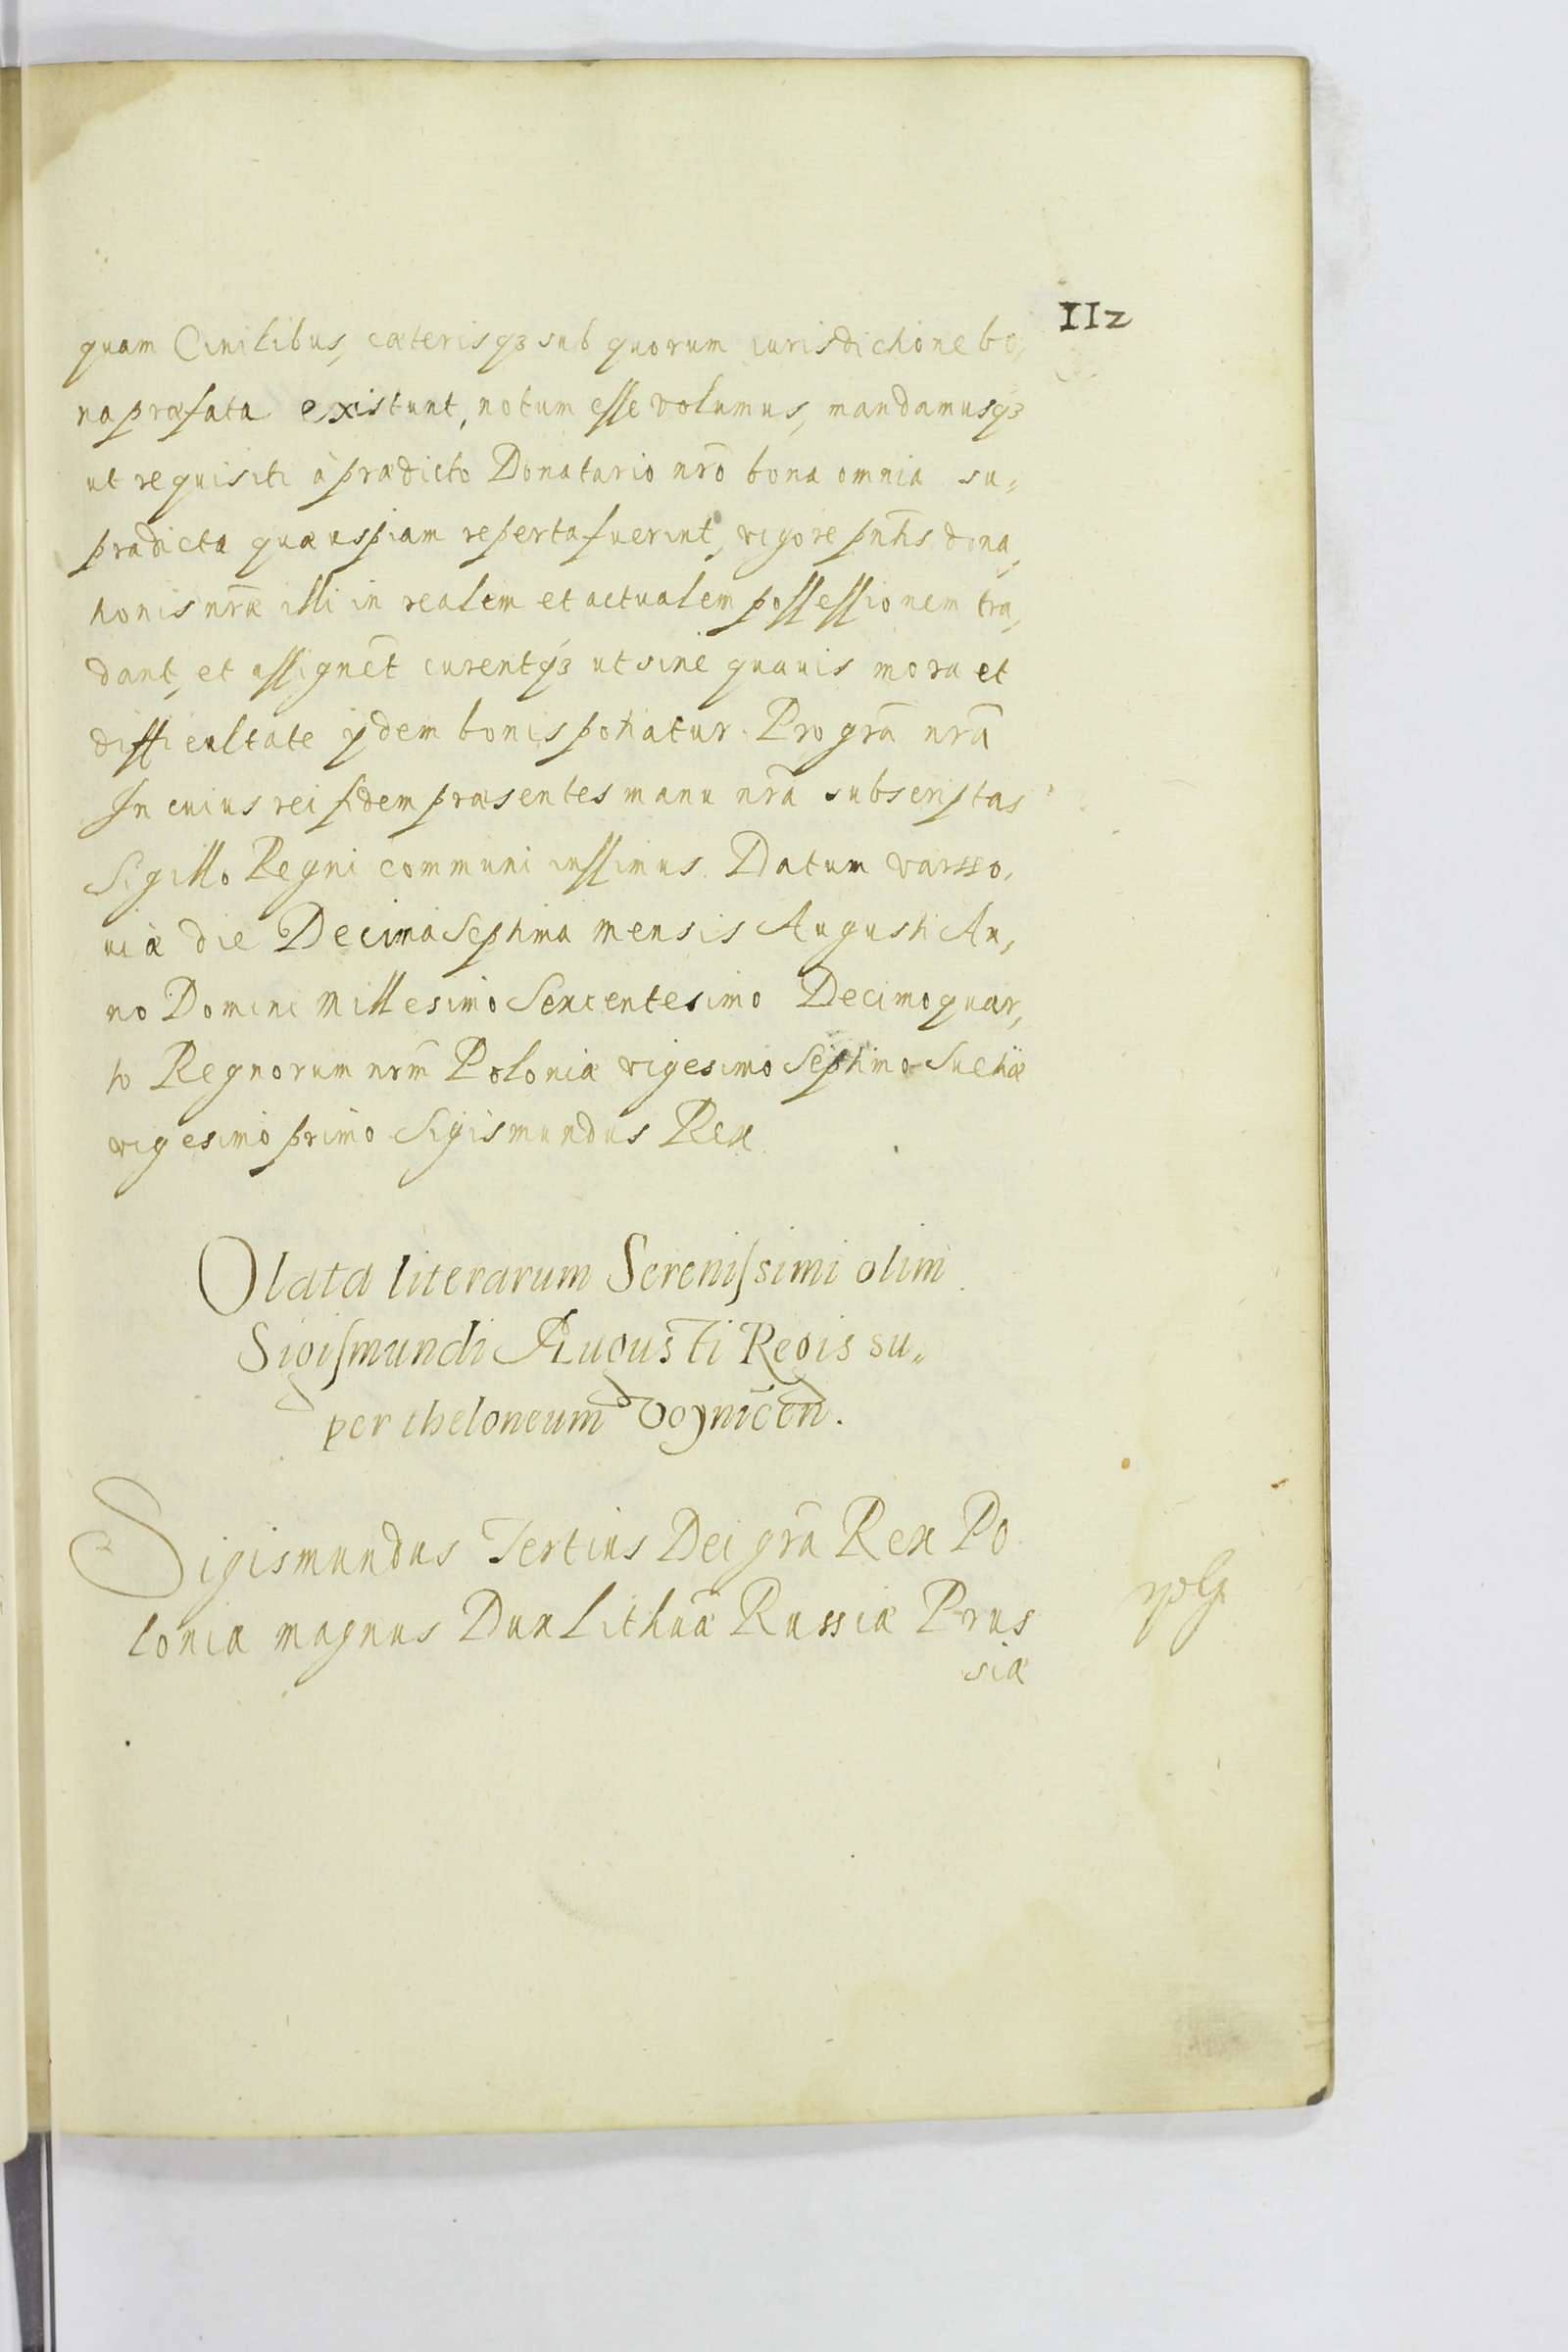 112
quam Ciuilibus, cæterisqꝫ sub quorum iurisdictione bo,
na præfata existunt, notum esse volumus, mandamusqꝫ
ut requisiti à prædicto Donatario nr̄o bona omnia su,,
prædicta quæ uspiam reperta fuerint, vigore pn̄tis dona,
tionis nr̄æ illi in realem et actualem possessionem tra,
dant, et assignēt curentqꝫ ut sine quauis mora et
difficultate ijdem bonis potiatur. Pro grā nr̄a
In cuius rei fidem præsentes manu nr̄a subscriptas
Sigillo Regni communi iussimus. Datum varsso,
uiæ die Decima Septima mensis Augusti An,
no Domini Millesimo Sexcentesimo Decimoquar,
to Regnorum nrm̄ Poloniæ vigesimo Septimo Suetiæ
vigesimo primo Sigismundus Rex
Olata literarum Serenissimi olim
Sigismundi Augusti Regis su,,
per theloneum Voynicēn.
Sigismundus Tertius Dei grā Rex Po
loniæ magnus Dux Lithuǣ Russiæ Prus
siæ